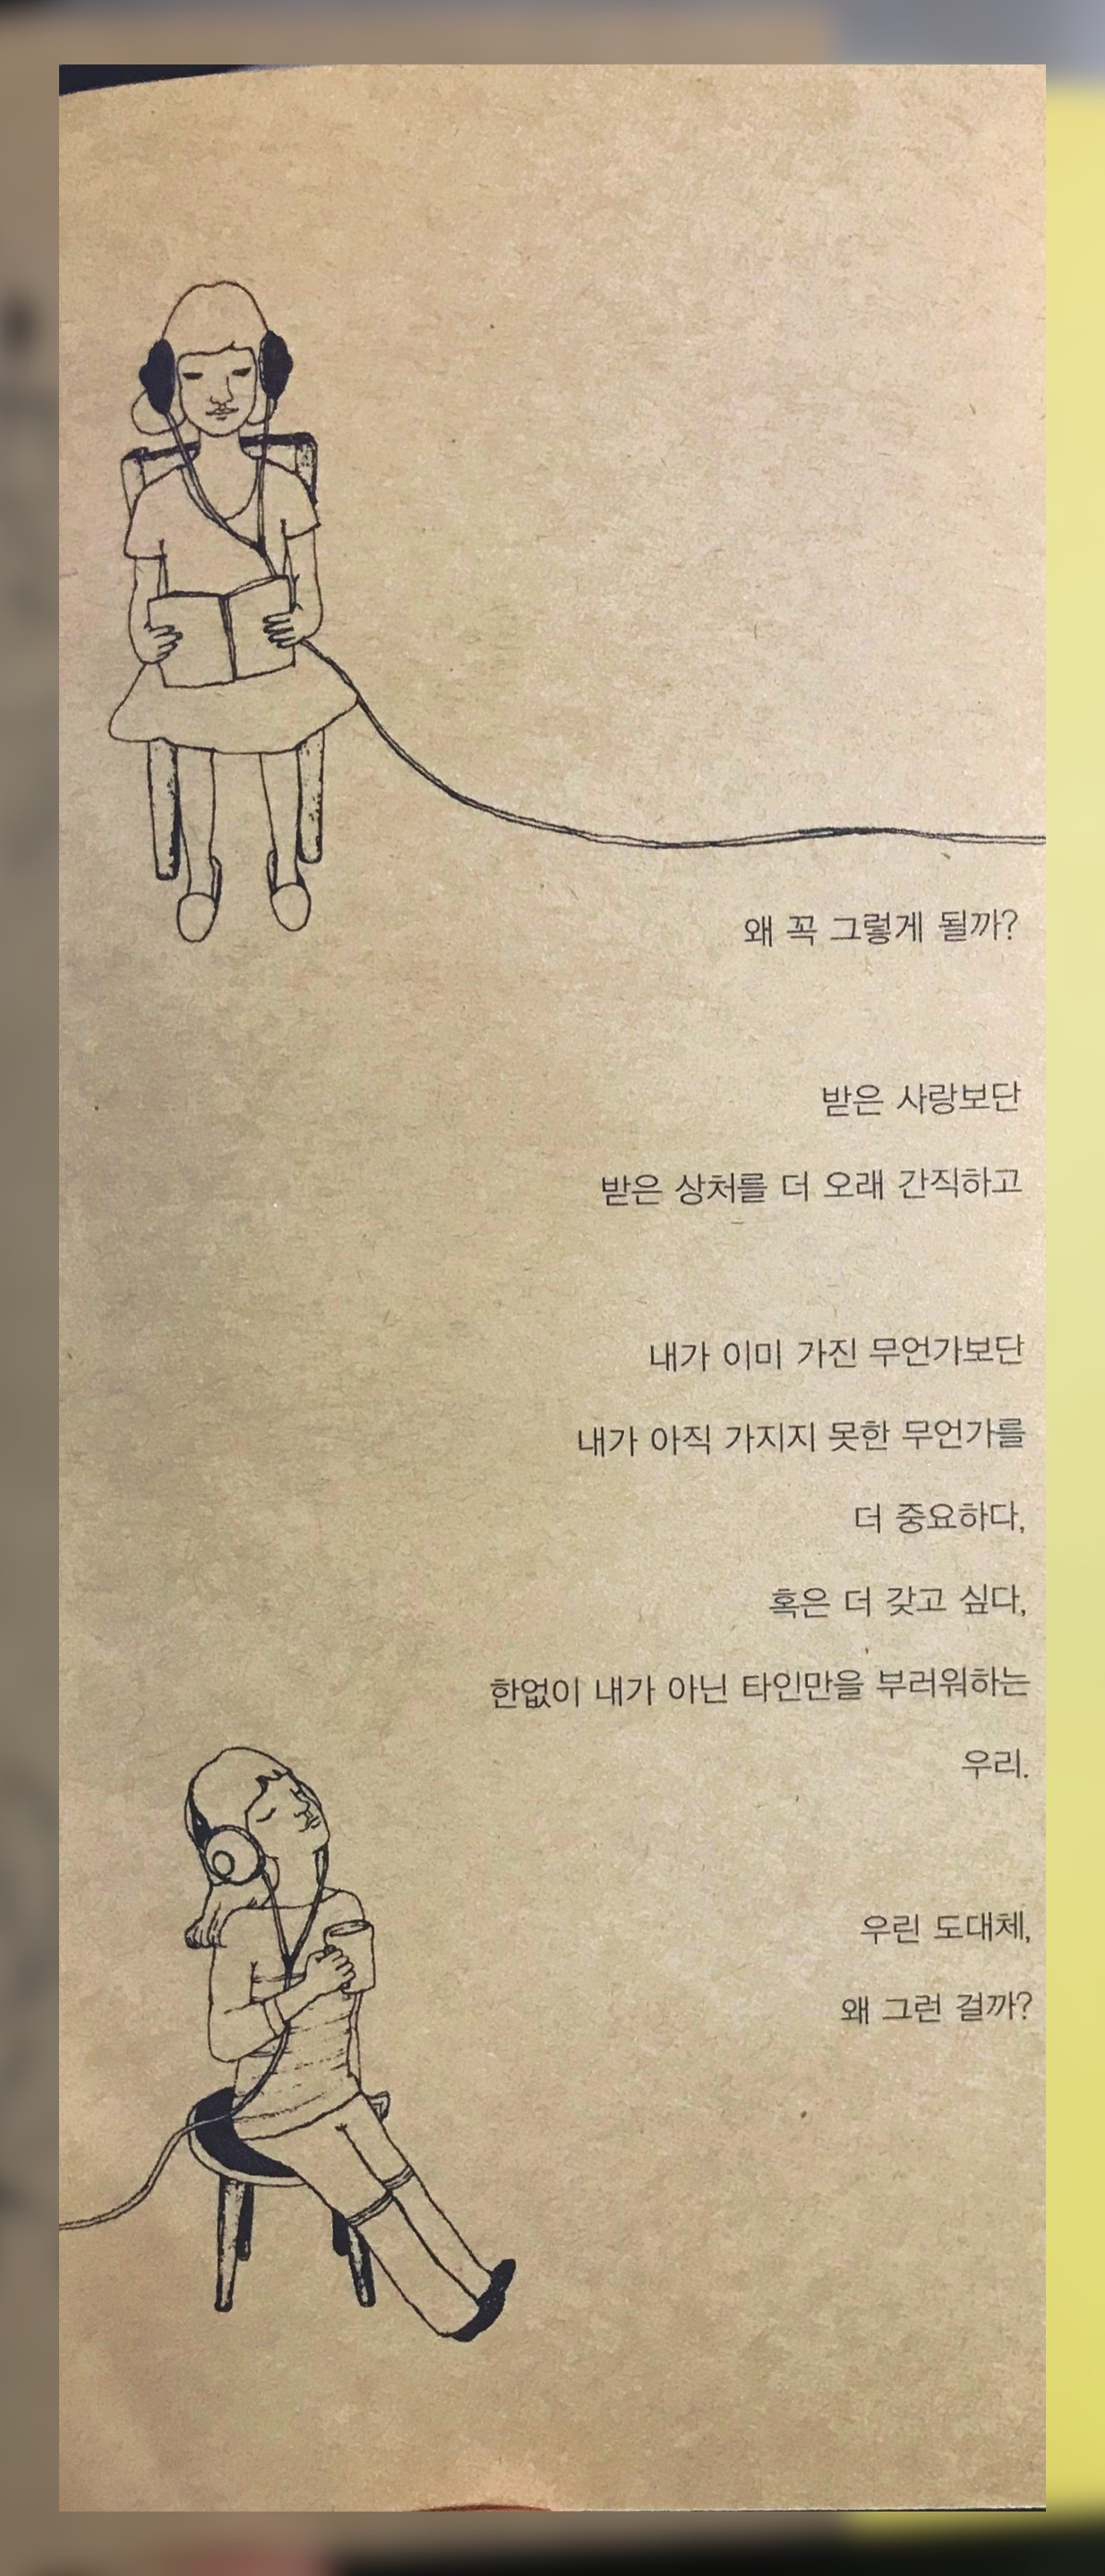 왜 꼭 그렇게 될까?
받은 사랑보단
받은 상처를 더 오래 간직하고
내가 이미 가진 무언가보단
내가 아직 가지지 못한 무언가를
더 중요하다,
혹은 더 갖고 싶다,
한없이 내가 아닌 타인만을 부러워하는
우리.
우린 도대체,
왜 그런 걸까?